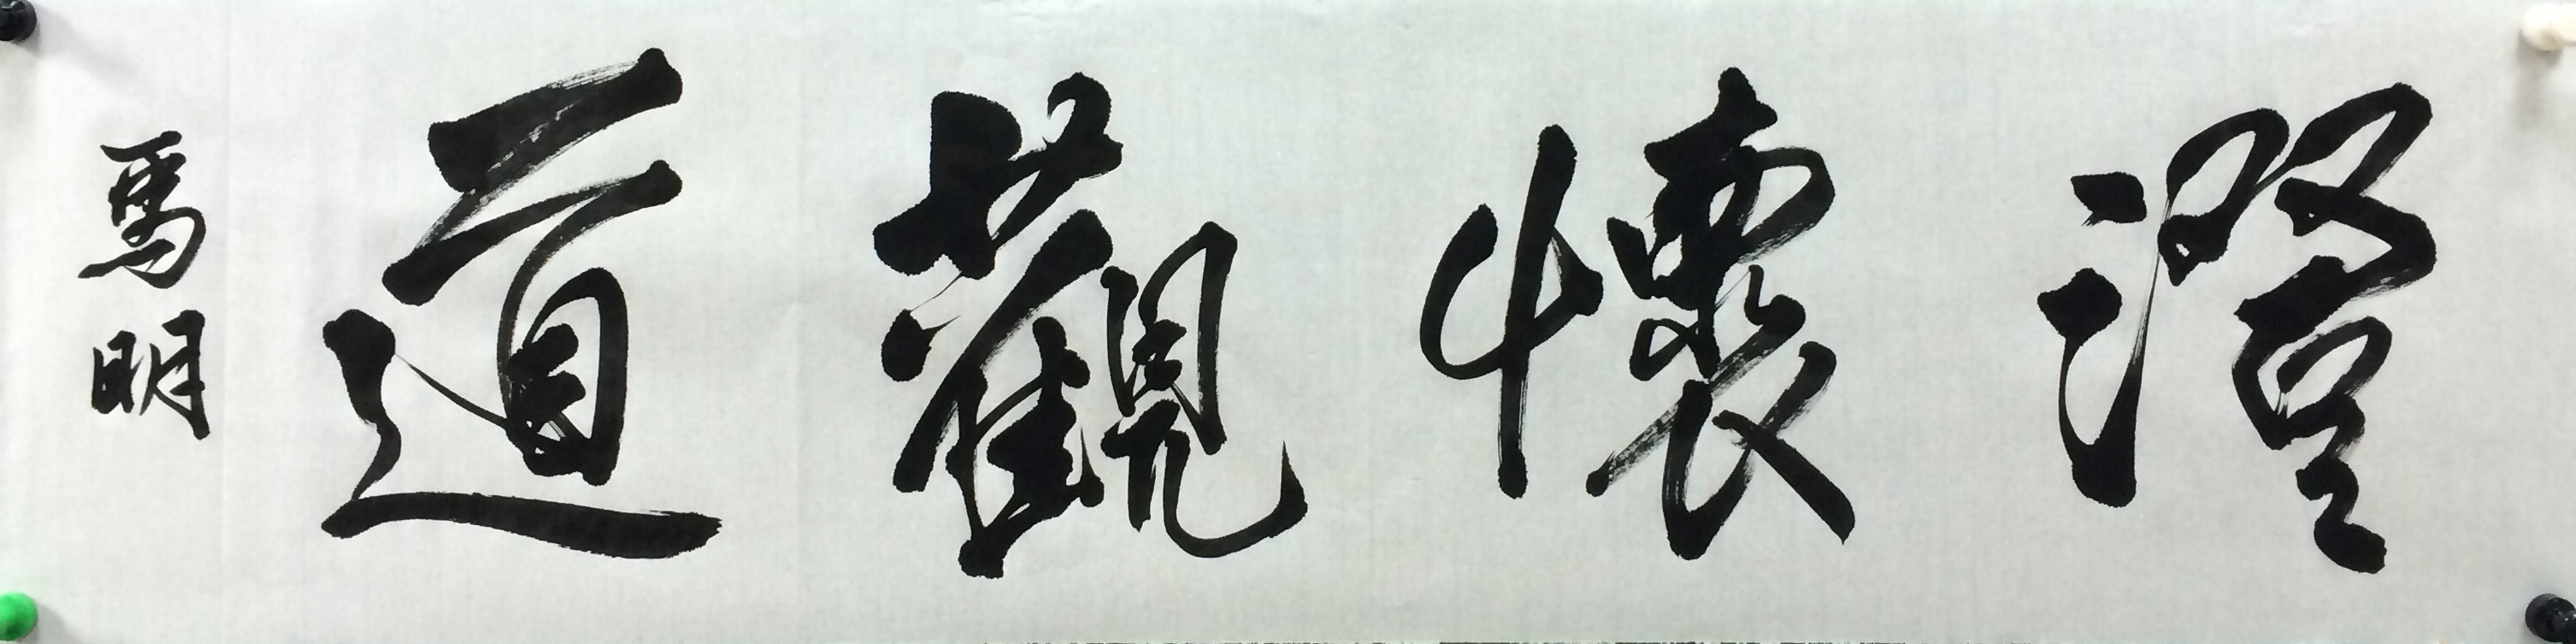 澄懷觀道
馬明